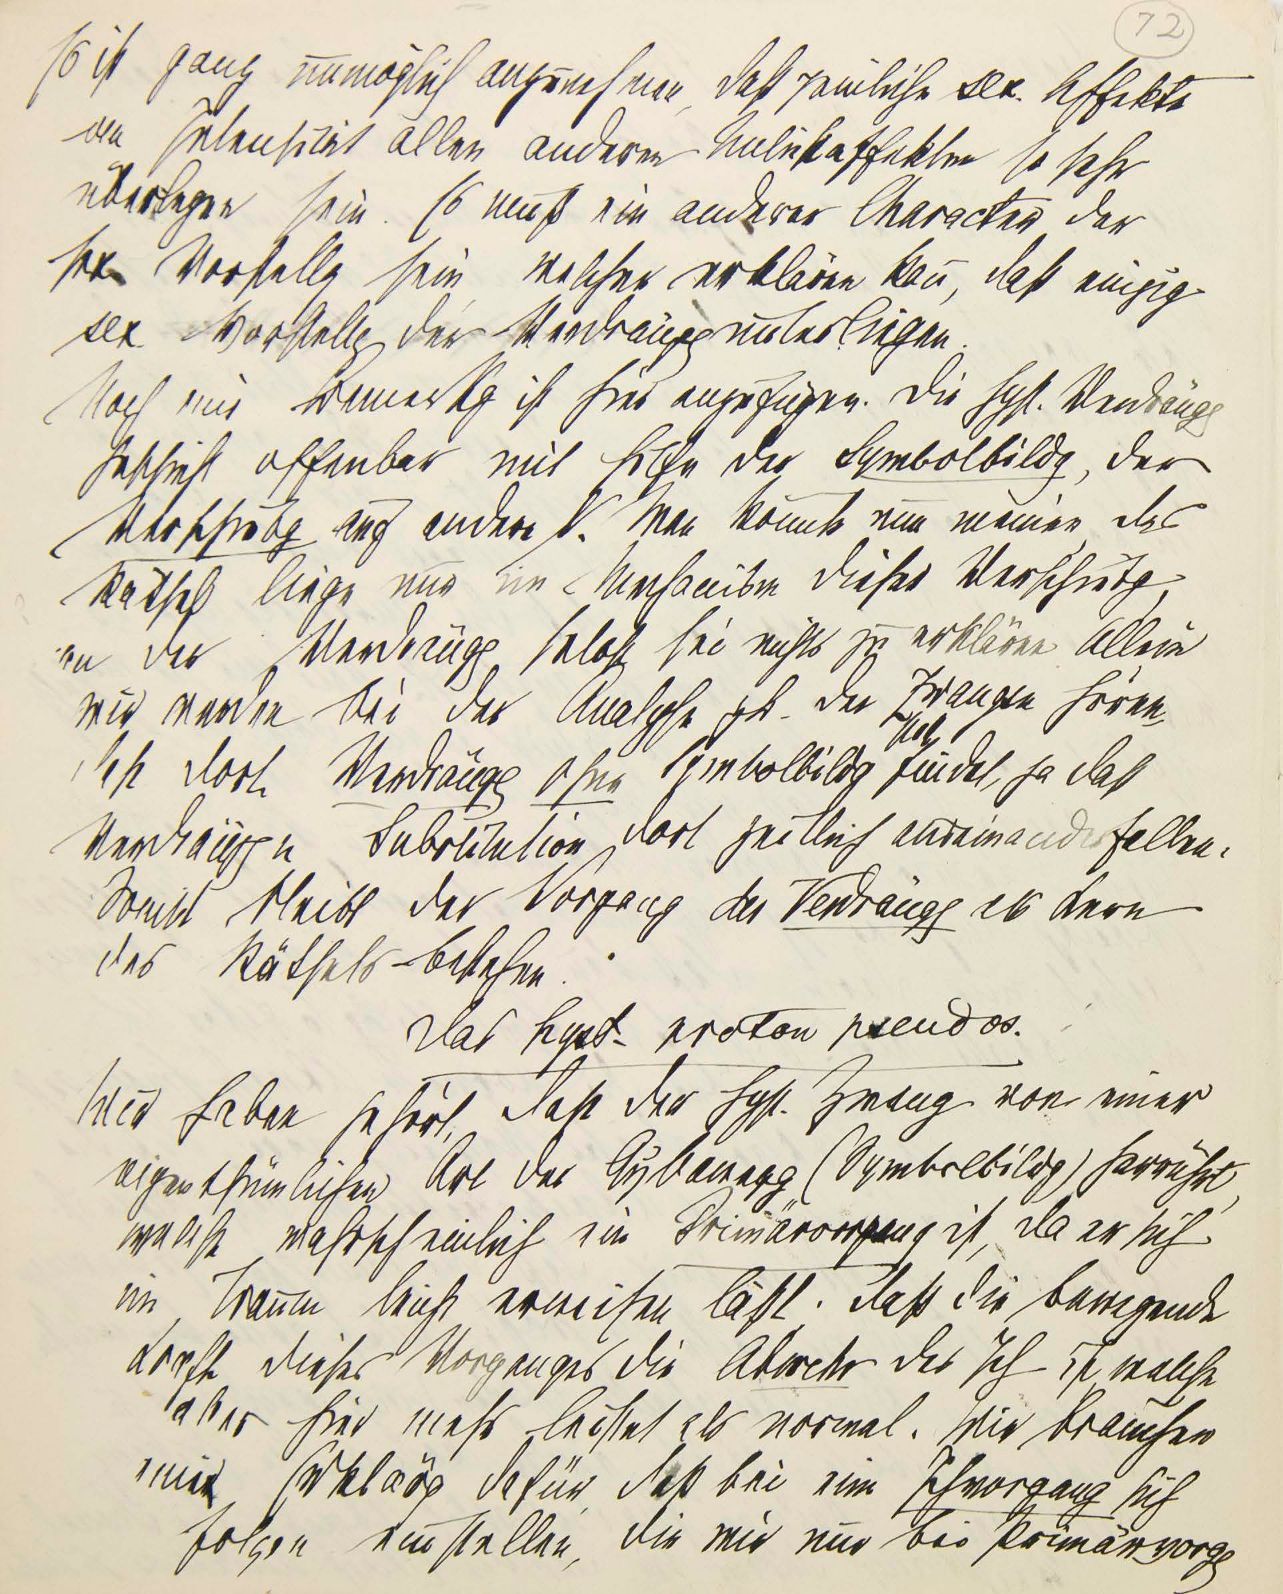 72
Es ist ganz unmöglich anzunehmen, daß peinliche sex. Affekte
an Intensität allen anderen Unlustaffekten so sehr
überlegen sein. Es muß ein anderer Character der
sex Vorstellg sein welcher erklären kan̄, daß einzig
sex Vorstellg der Verdrängg unterliegen.
Noch eine Bemerkg ist hier anzufügen. Die hyst. Verdrängg
geschieht offenbar mit Hilfe der Symbolbildg, der
Verschiebg auf andere N. Man könnte nun meinen, das
Rätsel liege nur im Mechanism dieser Verschiebg,
an der Verdrängg selbst sei nichts zu erklären Allein
wir werden bei der Analyse zb. der Zwangsn hören,
daß dort Verdrängg ohne Symbolbildg sich findet, ja daß
Verdrängg u Substitution dort zeitlich auseinanderfallen.
Somit bleibt der Vorgang der Verdrängg als Kern
des Rätsels bestehen.
Das hyst. proton pseudos.
Wir haben gehört, daß der hyst. Zwang von einer
eigenthümlichen Art der Qῆbewegg (Symbolbildg) herrührt,
welche wahrscheinlich ein Primärvorgang ist, da er sich
im Traum leicht erweisen läßt. daß die bewegende
Kraft dieses Vorganges die Abwehr des Ich ist, welche
aber hier mehr leistet als normal. Wir brauchen
eine Erklärg dafür, daß bei eim Ichvorgang sich
folgen einstellen, die wir nur bei Primärvorgg